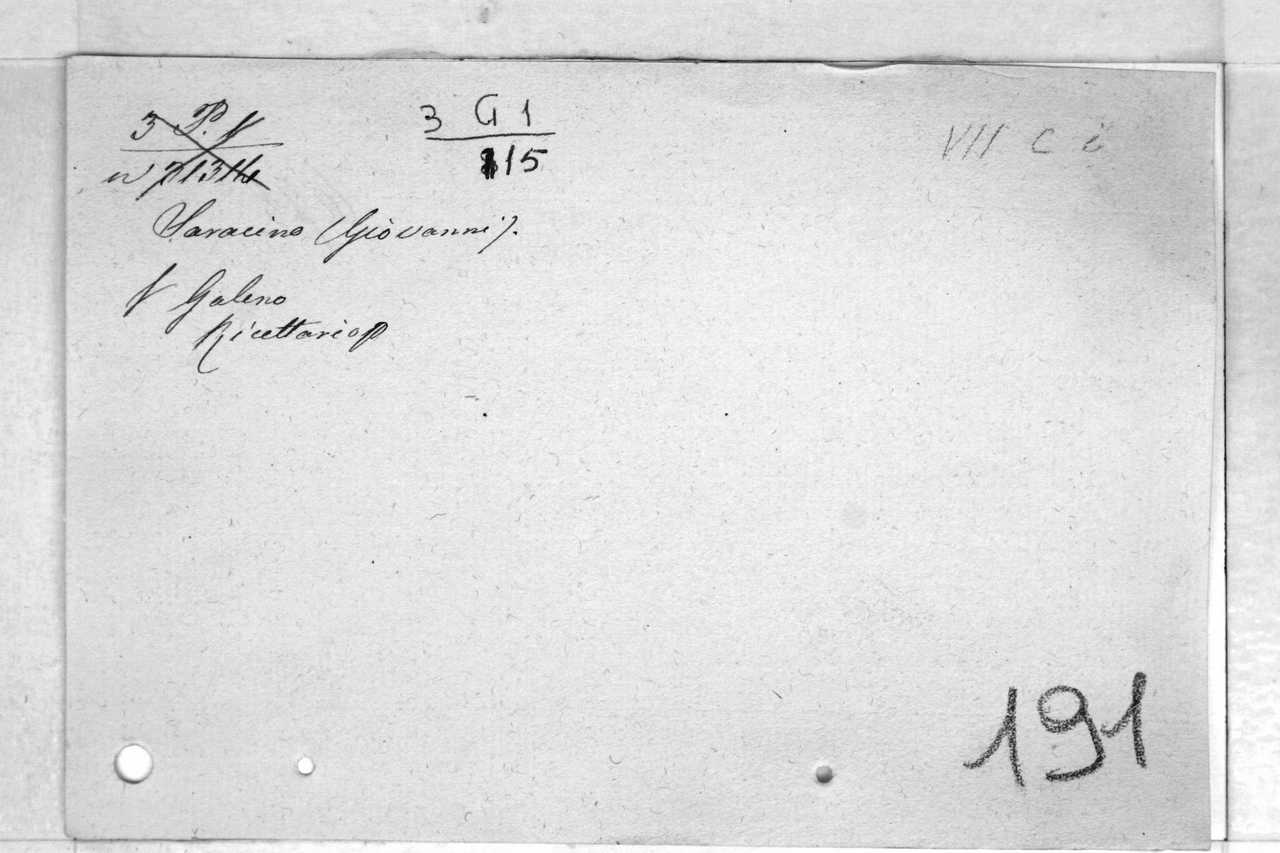 3 G 1
115
VII C
Saracino (Giovanni).
V Galeno
Ricettario
191